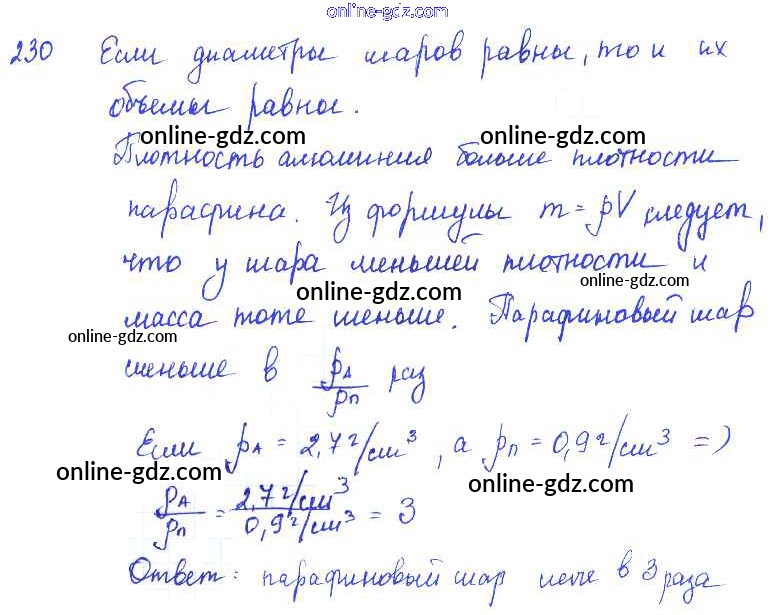 online-gdz.com
230 Если диаметры шаров равны, то и их
объемы равны.
online-gdz.com online-gdz.com
Плотность алюминия больше плотности
парафина. Из формулы m = ρV следует,
что у шара меньшей плотности и
online-gdz.com
масса тоже меньше. Парафиновый шар
online-gdz.com
меньше в ρA/ρп раз
Если ρA = 2,7 г/см³, а ρп = 0,9 г/см³ =>
online-gdz.com online-gdz.com
ρA/ρп = 2,7 г/см³ / 0,9 г/см³ = 3
Ответ: парафиновый шар легче в 3 раза